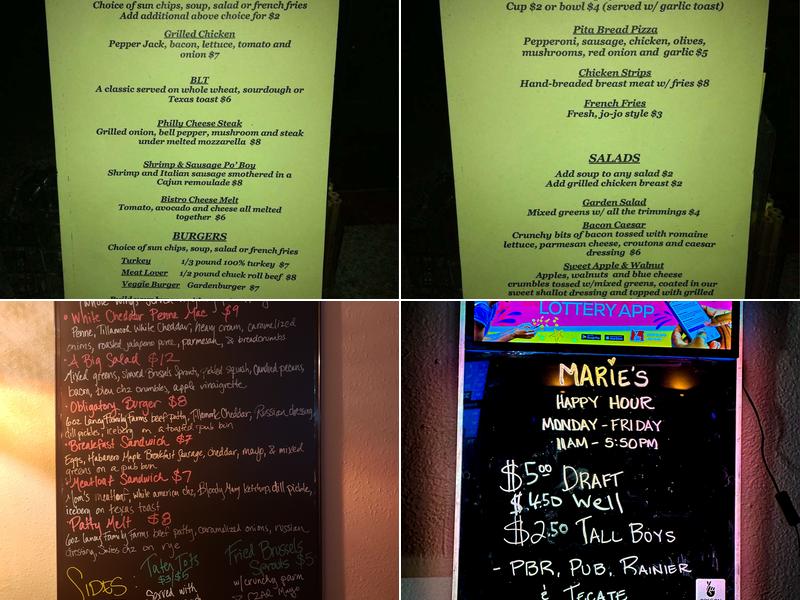 Choice of sun chips, soup, salad or french fries
Add additional above choice for $2
Grilled Chicken
Pepper Jack, bacon, lettuce, tomato and
onion $7
BLT
A classic served on whole wheat, sourdough or
Texas toast $6
Philly Cheese Steak
Grilled onion, bell pepper, mushroom and steak
under melted mozzarella $8
Shrimp & Sausage Po' Boy
Shrimp and Italian sausage smothered in a
Cajun remoulade $8
Bistro Cheese Melt
Tomato, avocado and cheese all melted
together $6
BURGERS
Choice of sun chips, soup, salad or french fries
Turkey 1/3 pound 100% turkey $7
Meat Lover 1/2 pound chuck roll beef $8
Veggie Burger Gardenburger $7
Cup $2 or bowl $4 (served w/ garlic toast)
Pita Bread Pizza
Pepperoni, sausage, chicken, olives,
mushrooms, red onion and garlic $5
Chicken Strips
Hand-breaded breast meat w/ fries $8
French Fries
Fresh, jo-jo style $3
SALADS
Add soup to any salad $2
Add grilled chicken breast $2
Garden Salad
Mixed greens w/ all the trimmings $4
Bacon Caesar
Crunchy bits of bacon tossed with romaine
lettuce, parmesan cheese, croutons and caesar
dressing $6
Sweet Apple & Walnut
Apples, walnuts and blue cheese
crumbles tossed w/mixed greens, coated in our
sweet shallot dressing and topped with grilled
• White Cheddar Penne Mac $9
Penne, Tillamook White Cheddar, heavy cream, caramelized
onions, roasted jalapeno puree, parmesan, & breadcrumbs
• A Big Salad $12
Mixed greens, shaved Brussels Sprouts, pickled squash, candied pecans,
bacon, bleu chz crumbles, apple vinaigrette
• Obligatory Burger $8
6oz Laney Family Farms beef patty, Tillamook Cheddar, Russian dressing,
dill pickles, iceberg on a toasted pub bun
• Breakfast Sandwich $7
Eggs, Habanero Maple Breakfast Sausage, cheddar, mayo, & mixed
greens on a pub bun
• Meatloaf Sandwich $7
Mom's meatloaf, white american chz, Bloody Mary ketchup, dill pickle,
iceberg on texas toast
• Patty Melt $8
6oz Laney Family Farms beef patty, caramelized onions, russian
dressing, Swiss chz on rye
SIDES:
Tater Tots
$3/$5
Served with
Fried Brussels
Sprouts $5
w/ crunchy parm
LOTTERY APP
MARIE'S
HAPPY HOUR
MONDAY - FRIDAY
11AM - 5:50PM
$5.00 DRAFT
$4.50 Well
$2.50 TALL BOYS
- PBR, PUB, RAINIER
& TECATE